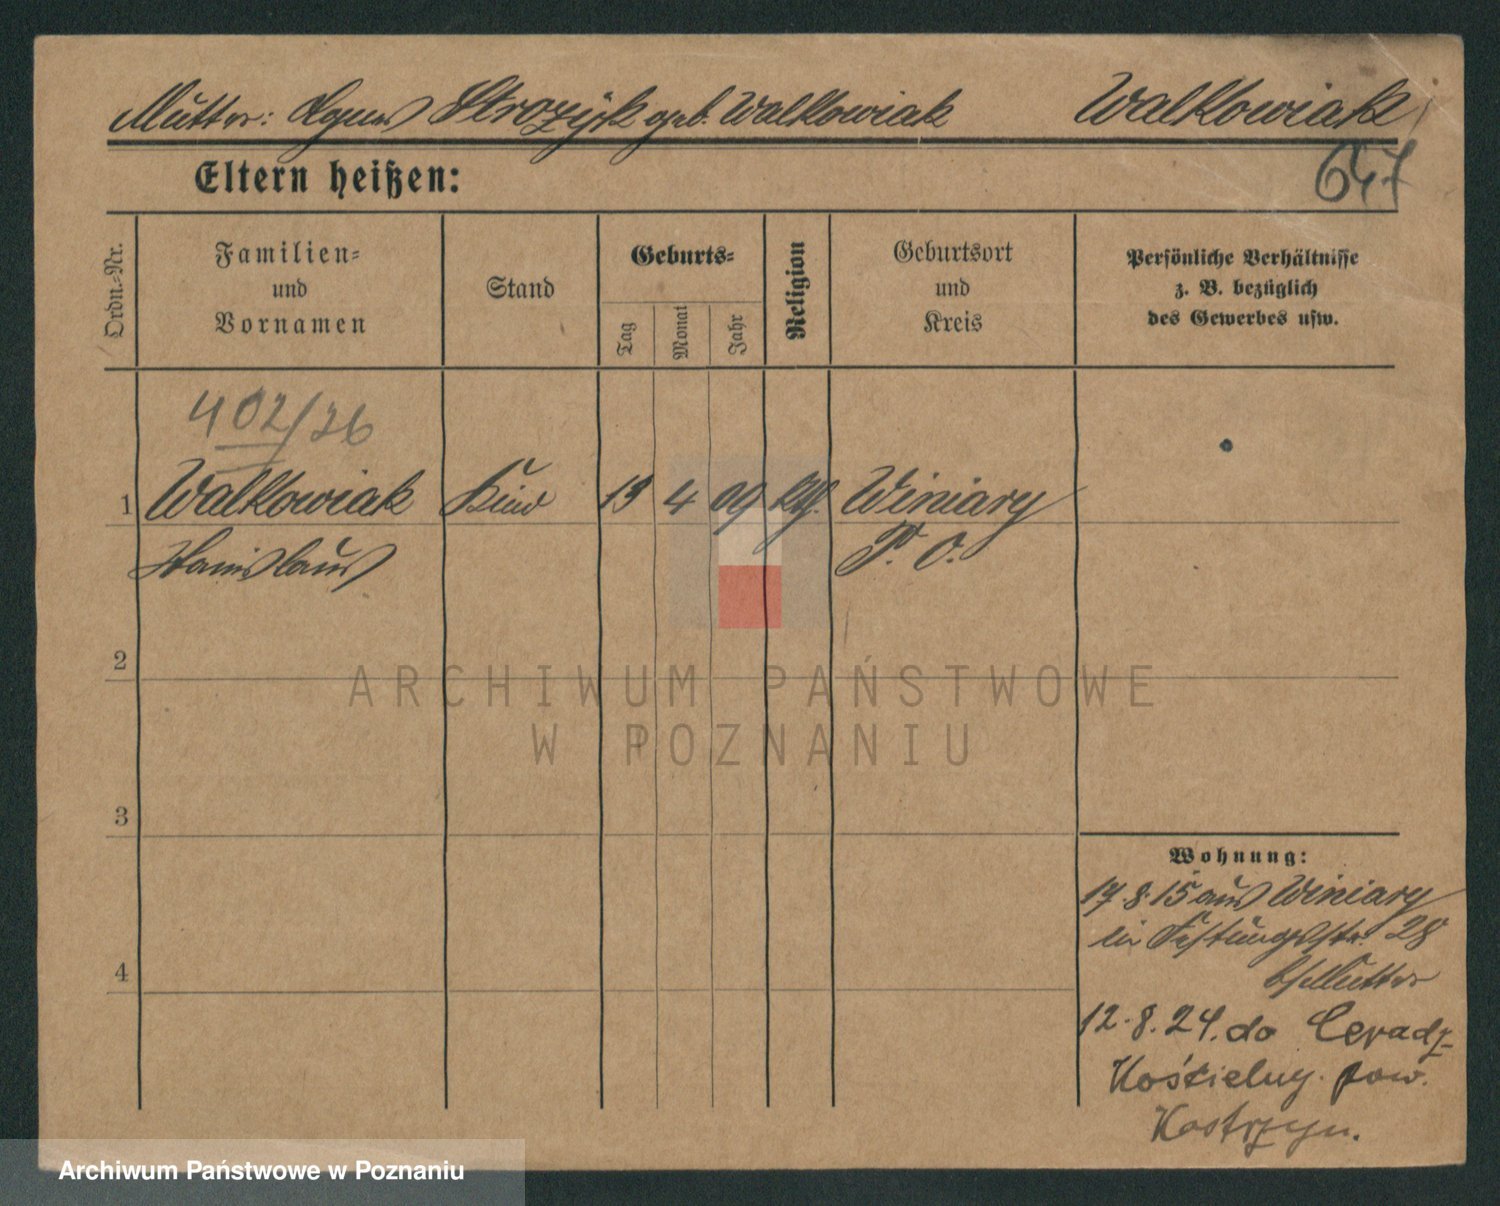 Mutter: Agnes Strozyk geb. Walkowiak Walkowiak
647
Eltern heißen:
Ordn.-Nr.
Familien-
und
Vornamen
Stand
Geburts-
Tag
Monat
Jahr
Religion
Geburtsort
und
Kreis
Persönliche Verhältnisse
z. B. bezüglich
des Gewerbes usw.
402/26
1 Walkowiak Kind 13 4 09 Winiary
Stanislaus P. O.
2
3
4
Wohnung:
17.8.15 aus Winiary
in Festungsstr. 28
b/Mutter
12.8.24. do Ceradz-
Kościelny. pow.
Kostrzyn.
ARCHIWUM PAŃSTWOWE
W POZNANIU
Archiwum Państwowe w Poznaniu